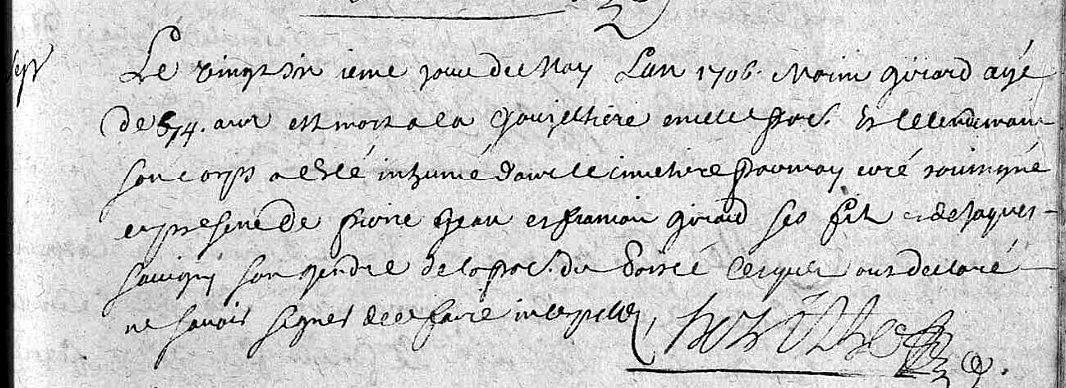 Le vingt sixieme jour de May L'an 1706. Morin girard agé
de 74. ans est mort a la en cette par. Et le lendemain
son corps a esté inhumé dans le cimetiere par moy curé soussigné
en presence de pierre Jean et francois girard ses fils et de Jaques
Sauvigni son gendre de la par. du Boisle lesquels ont declaré
ne savoir signer de ce faire interpellés